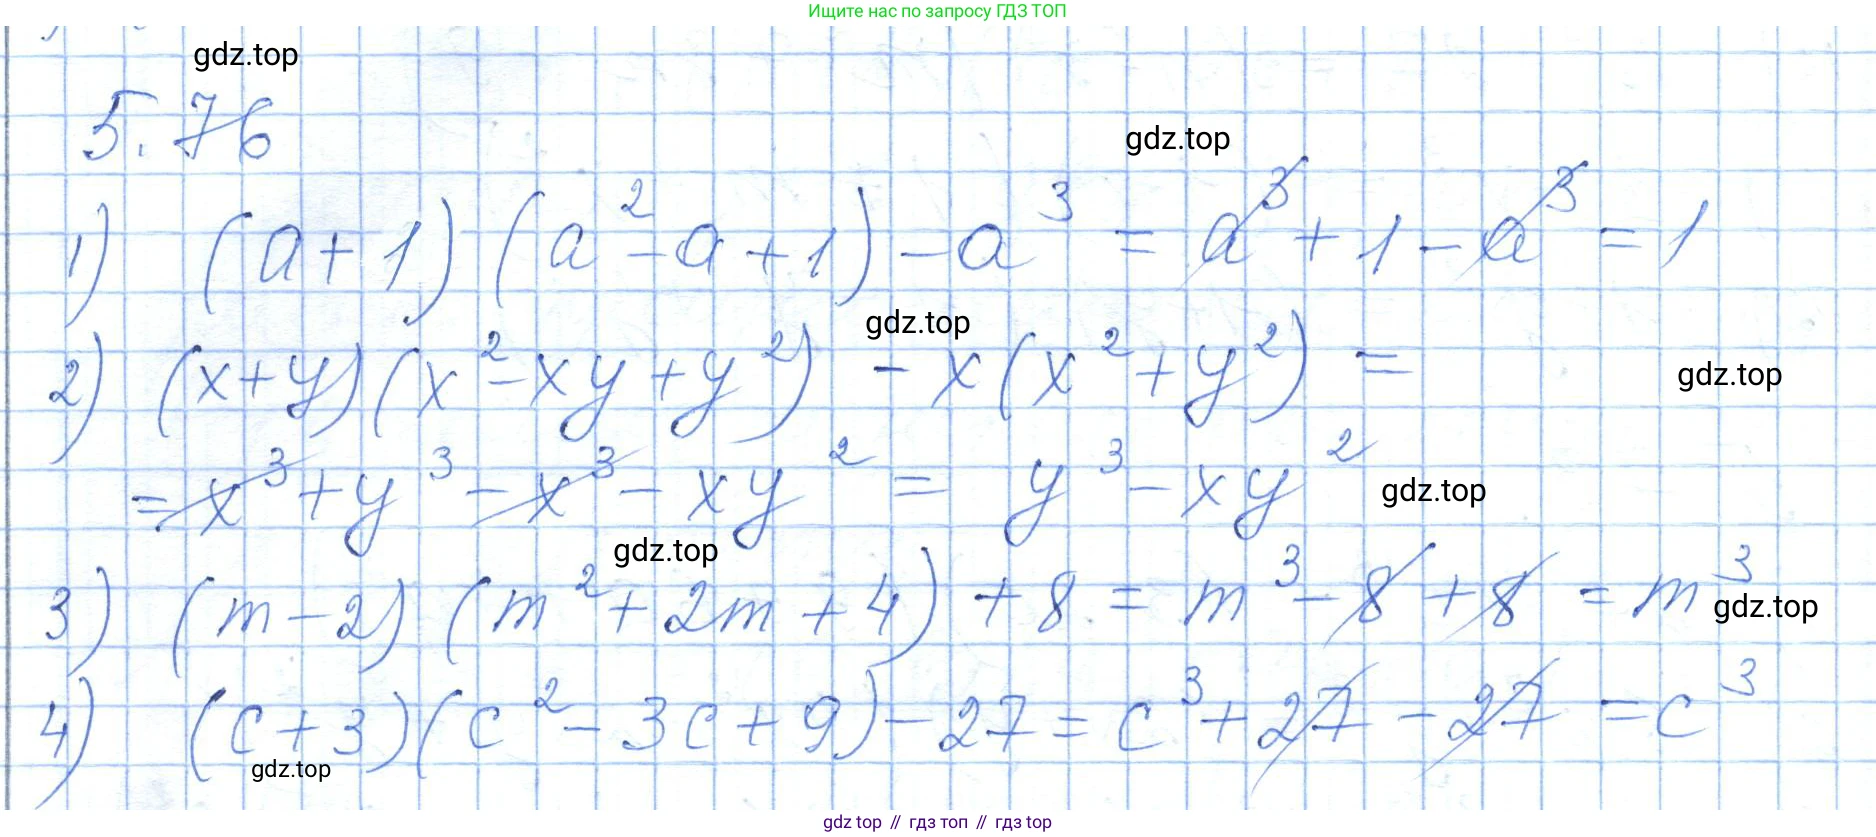 Ищите нас по запросу ГДЗ ТОП
gdz.top
5.76
gdz.top
1) (a+1)(a²-a+1)-a³ = a³+1-a³ = 1
gdz.top
2) (x+y)(x²-xy+y²) - x(x²+y²) =
gdz.top
= x³+y³-x³-xy² = y³-xy²
gdz.top
gdz.top
3) (m-2)(m²+2m+4)+8 = m³-8+8 = m³
gdz.top
4) (c+3)(c²-3c+9)-27 = c³+27-27 = c³
gdz.top
gdz top // гдз топ // gdz top